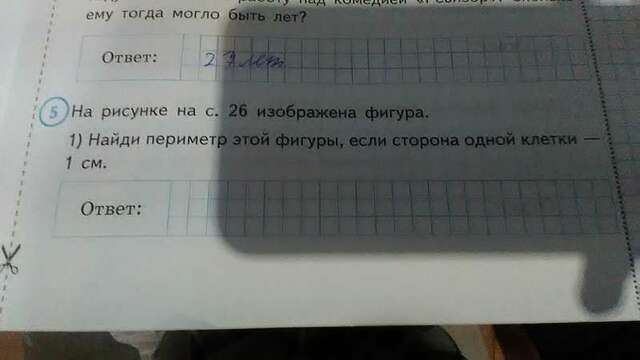 работу над комедией
ему тогда могло быть лет?
Ответ: 27 лет
5 На рисунке на с. 26 изображена фигура.
1) Найди периметр этой фигуры, если сторона одной клетки —
1 см.
Ответ: